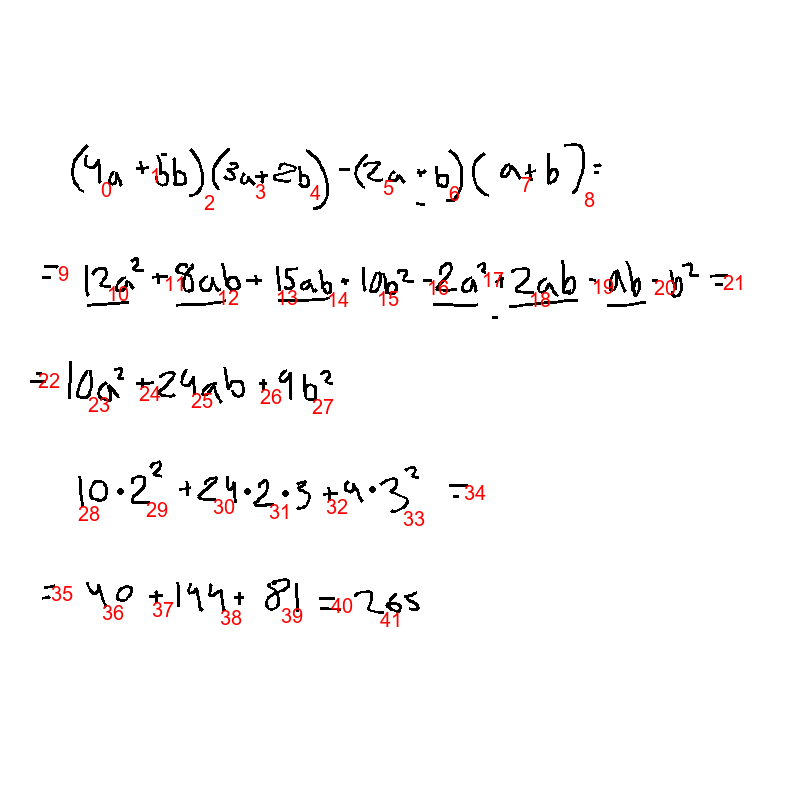 (4a + 5b)(3a+2b) - (2a - b)(a+b) =
0 1 2 3 4 5 6 7 8
= 12a² + 8ab + 15ab + 10b² - 2a² + 2ab - ab - b² =
9 10 11 12 13 14 15 16 17 18 19 20 21
= 10a² + 24ab + 9b²
22 23 24 25 26 27
10 · 2² + 24 · 2 · 3 + 9 · 3² =
28 29 30 31 32 33 34
= 40 + 144 + 81 = 265
35 36 37 38 39 40 41